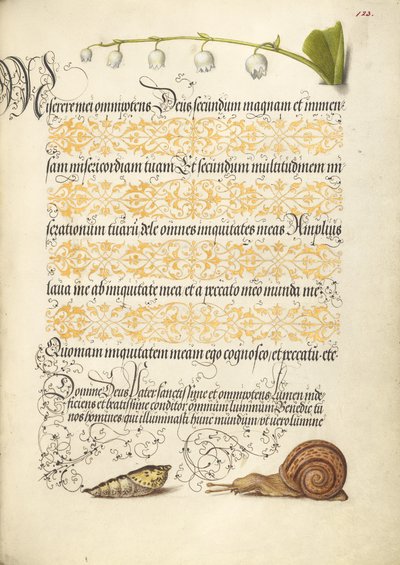 123.
Miserere mei omnipotens Deus secundum magnam et immen
sam misericordiam tuam Et secundum multitudinem mi
serationum tuarū dele omnes iniquitates meas Amplius
laua me ab iniquitate mea et a peccato meo munda me
Quoniam iniquitatem meam ego cognosco, et peccatū etc
Domine Deus Pater sanctissime et omnipotens Lumen inde
ficiens et beatissime conditor omnium luminum Benedic tu
nos homines qui illuminasti hunc mundum vt vero lumine